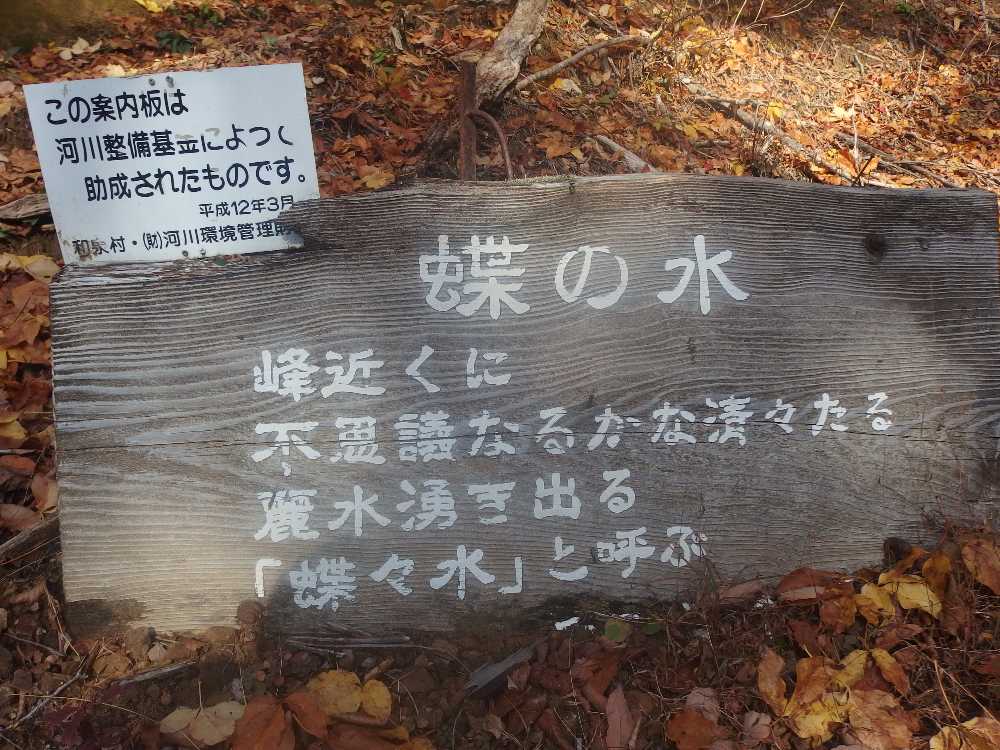 この案内板は
河川整備基金によって
助成されたものです。
平成12年3月
和泉村・(財)河川環境管理財
蝶の水
峰近くに
不思議なるかな清々たる
麗水湧き出る
「蝶々水」と呼ぶ